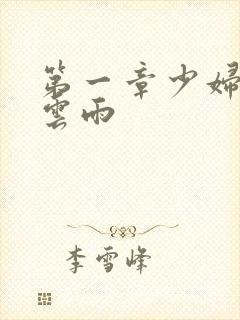 第一章少婦
雲雨
李雪峰